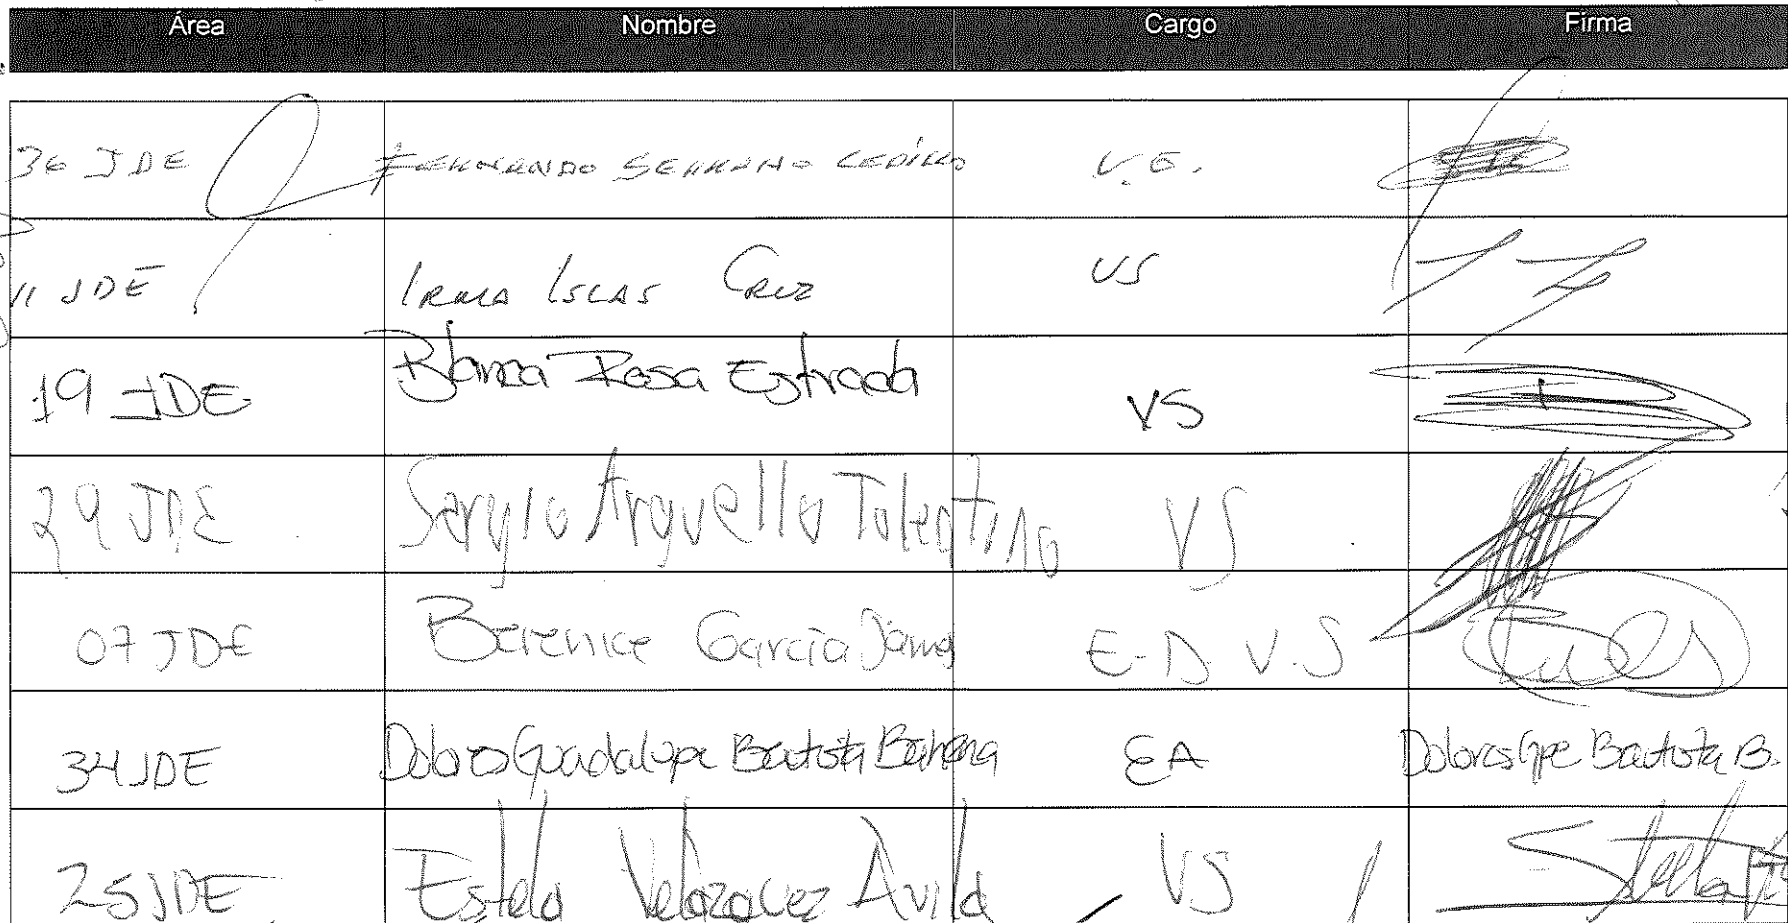 Área Nombre Cargo Firma
36 JDE FERNANDO SERRANO CEDILLO V.E.
11 JDE IRMA ISLAS CRUZ VS
19 JDE Blanca Rosa Estrada VS
29 JDE Sergio Arguello Tolentino VS
07 JDE Berenice García E.D. V.S
34 JDE Dolores Guadalupe Bautista Bahena EA Dolores Gpe Bautista B.
25 JDE Estela Velazquez Avila VS